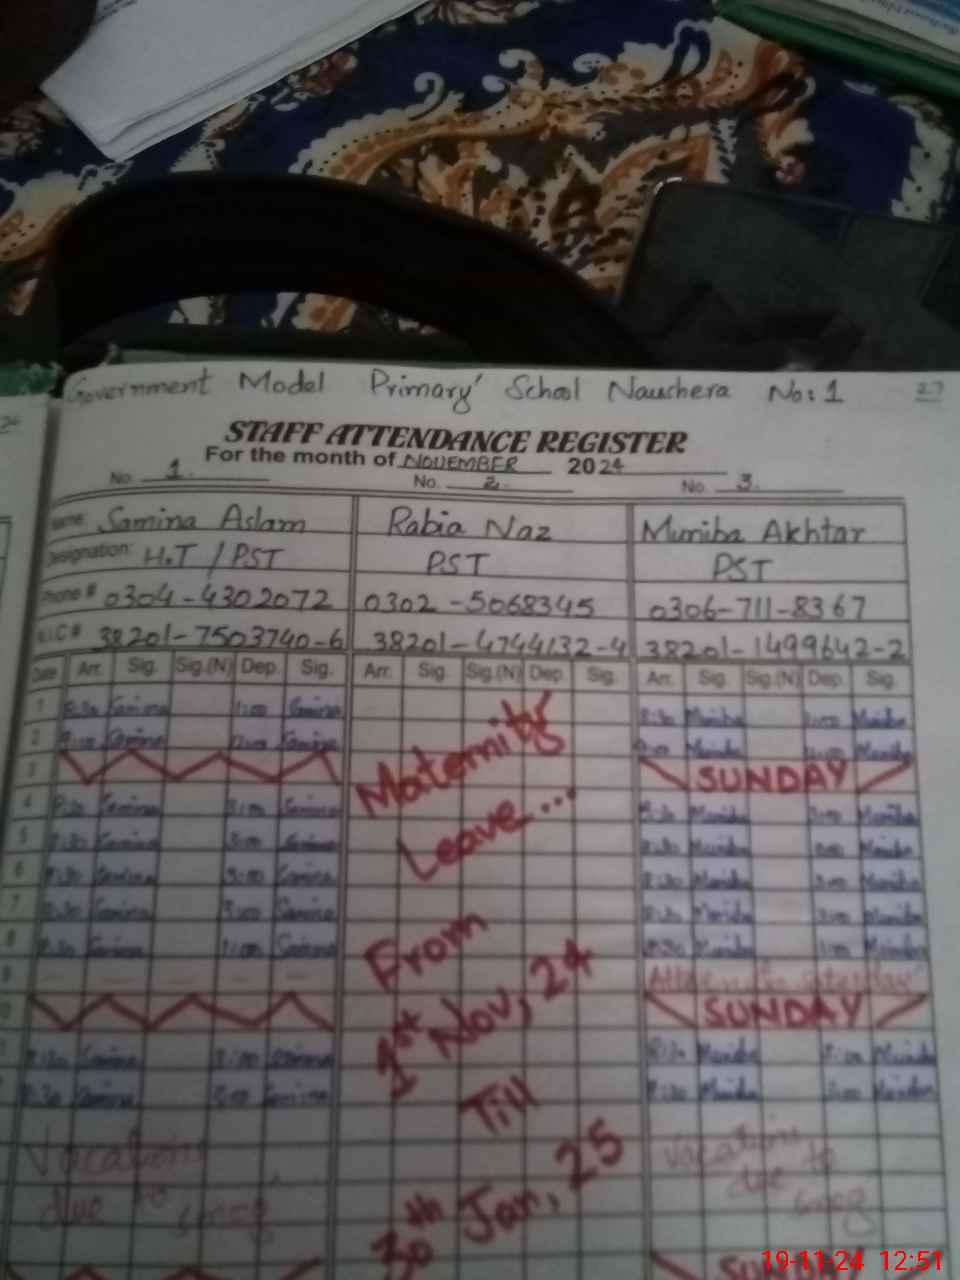 Government Model Primary School Naushera No:1 27
STAFF ATTENDANCE REGISTER
For the month of NOVEMBER 2024
No. 1. No. 2. No. 3.
Name: Samina Aslam Rabia Naz Muniba Akhtar
Designation: H.T / PST PST PST
Phone # 0304-4302072 0302-5068345 0306-711-8367
N.I.C # 38201-7503740-6 38201-4744132-4 38201-1499642-2
Date Arr. Sig. Sig.(N) Dep. Sig. Arr. Sig. Sig.(N) Dep. Sig. Arr. Sig. Sig.(N) Dep. Sig.
1 8:30 Samina 1:00 Samina 8:30 Muniba 1:00 Muniba
2 9:00 Samina Samina 9:00 Muniba Muniba
Maternity
3 SUNDAY
4 Samina Samina Muniba Muniba
Leave...
5 Samina Samina Muniba Muniba
6 8:30 Samina 3:00 Samina 8:30 Muniba Muniba
7 8:30 Samina 3:00 Samina 8:30 Muniba Muniba
8 8:30 Samina 1:00 Samina 8:30 Muniba 1:00 Muniba
From
9
SUNDAY
1st Nov, 24
8:30 Samina Samina 8:30 Muniba Muniba
8:30 Samina Samina 8:30 Muniba Muniba
Till
Vacations due to smog
30th Jan, 25
Vacations due to smog
19-11-24 12:51